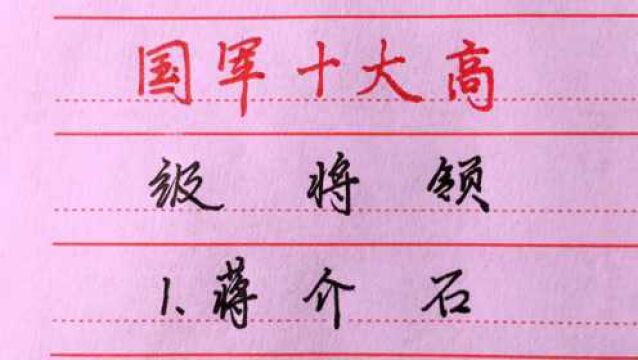 国军十大高
级将领
1、蒋介石